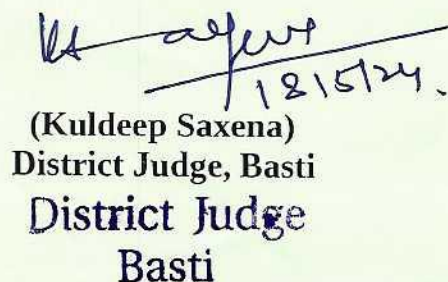 18/5/24.
(Kuldeep Saxena)
District Judge, Basti
District Judge
Basti